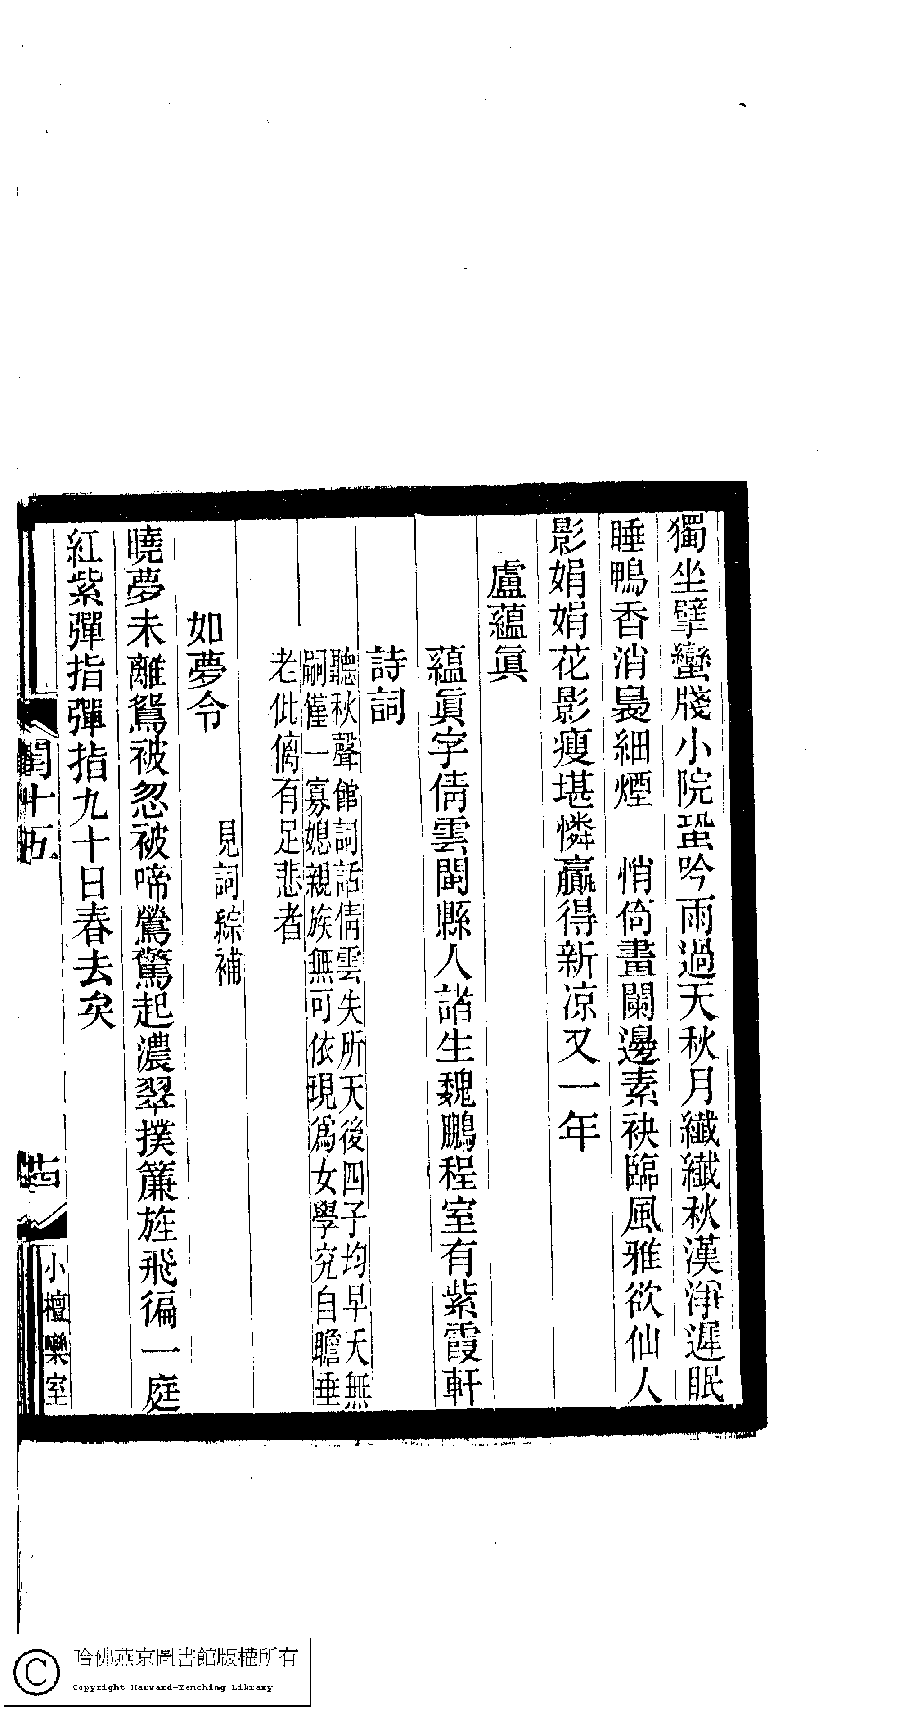 獨坐擘蠻牋小院蛩吟雨過天秋月纖纖秋漢淨遲眠
睡鴨香消裊細煙　悄倚畫闌邊素袂臨風雅欲仙人
影娟娟花影瘦堪憐贏得新凉又一年
盧蘊眞
蘊眞字倩雲閩縣人諸生魏鵬程室有紫霞軒
詩詞
聽秋聲館詞話倩雲失所天後四子均早夭無
嗣僅一寡媳親族無可依現爲女學究自贍垂
老仳𠌯有足悲者
如夢令
見詞綜補
曉夢未離鴛被忽被啼鶯驚起濃翠撲簾旌飛徧一庭
紅紫彈指彈指九十日春去矣
閨十五
十四
小檀欒室
哈佛燕京圖書館版權所有
Copyright Harvard-Yenching Library